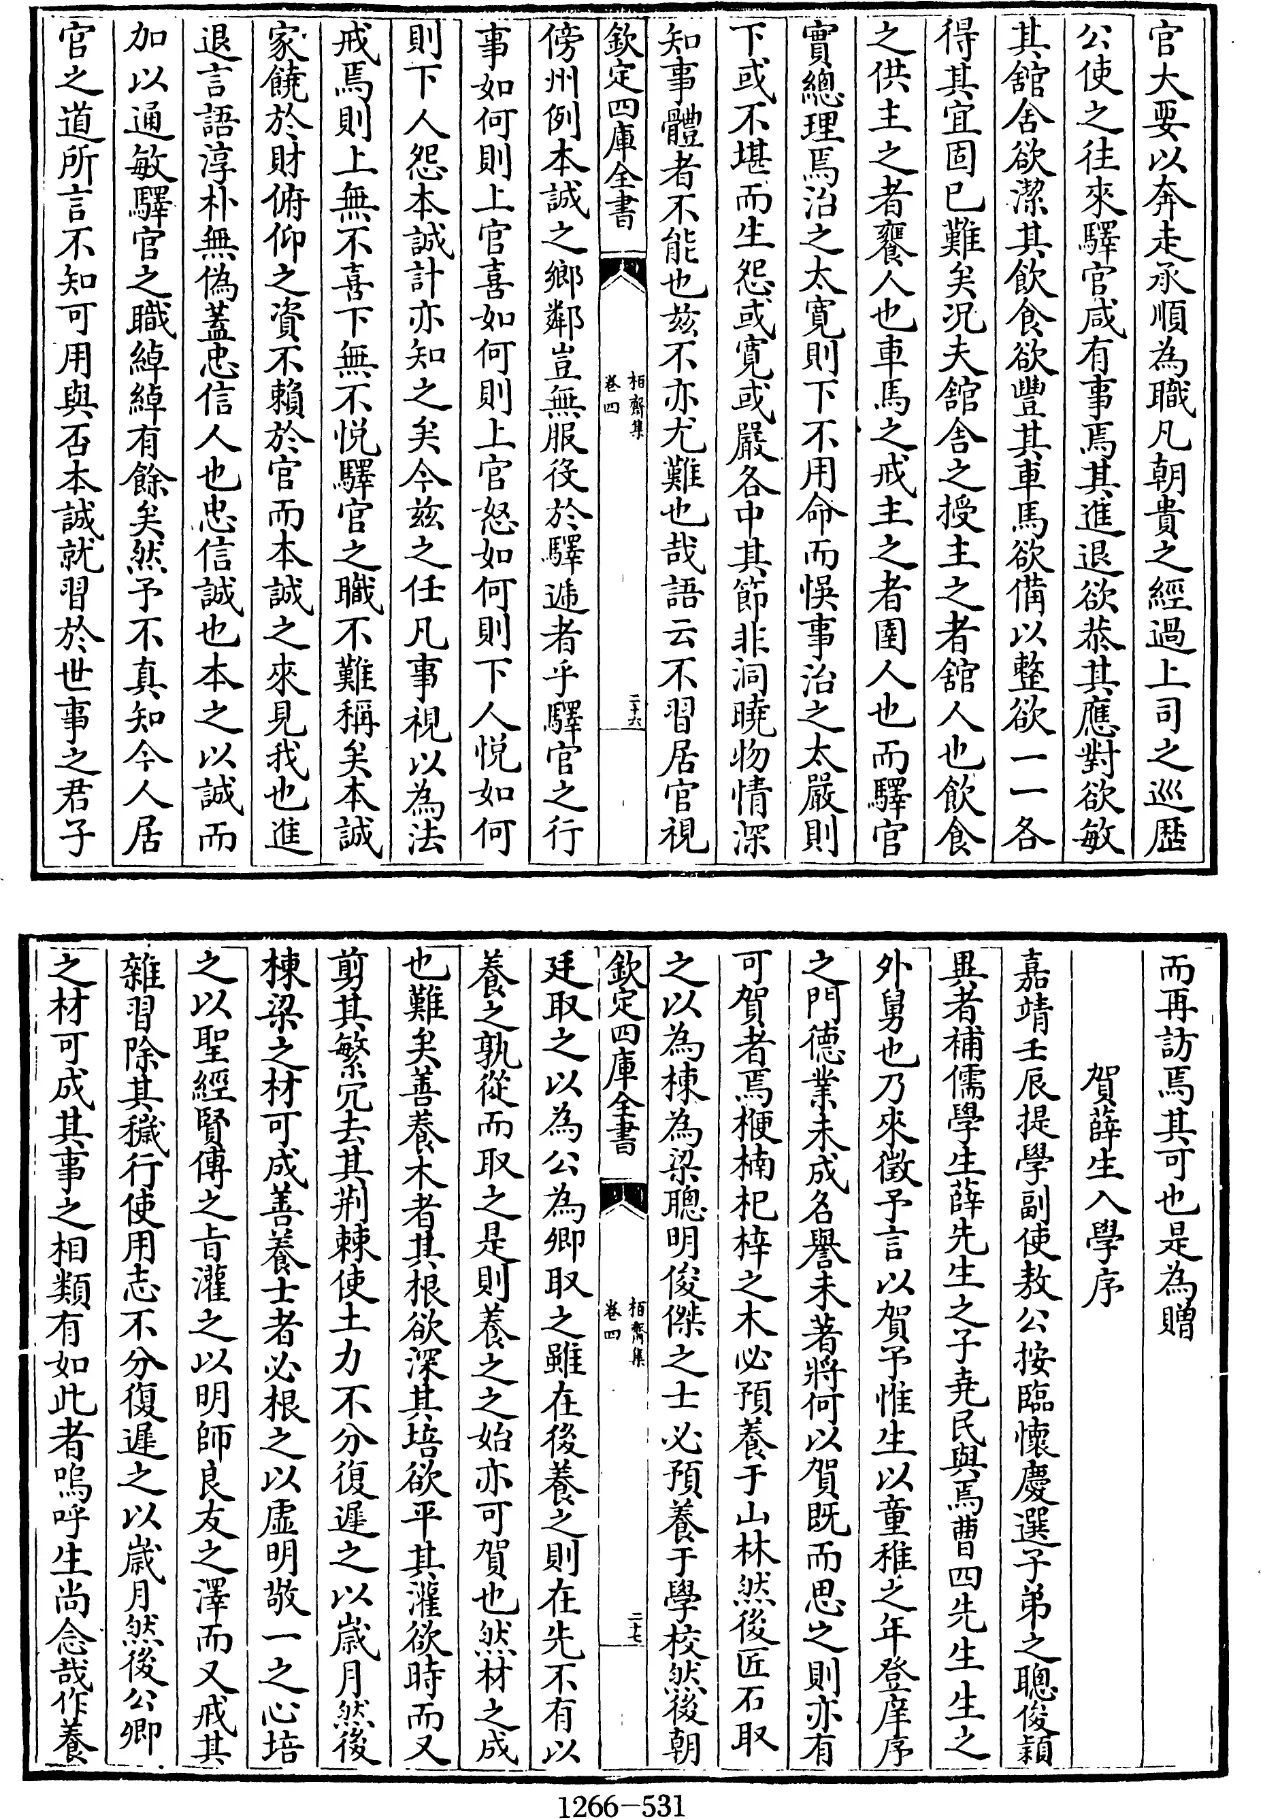 官大要以奔走承順為職凡朝貴之經過上司之巡歷
公使之往來驛官咸有事焉其進退欲恭其應對欲敏
其舘舍欲潔其飲食欲豐其車馬欲備以整欲一一各
得其宜固已難矣况夫舘舍之授主之者舘人也飲食
之供主之者饔人也車馬之戒主之者圉人也而驛官
實總理焉治之太寛則下不用命而悞事治之太嚴則
下或不堪而生怨或寛或嚴各中其節非洞曉物情深
知事體者不能也兹不亦尤難也哉語云不習居官視
欽定四庫全書
栢齋集
卷四
二十六
傍州例本誠之鄉鄰豈無服役於驛逓者乎驛官之行
事如何則上官喜如何則上官怒如何則下人悦如何
則下人怨本誠計亦知之矣今兹之任凡事視以為法
戒焉則上無不喜下無不悦驛官之職不難稱矣本誠
家饒於財俯仰之資不賴於官而本誠之來見我也進
退言語淳朴無偽蓋忠信人也忠信誠也本之以誠而
加以通敏驛官之職綽綽有餘矣然予不真知今人居
官之道所言不知可用與否本誠就習於世事之君子
而再訪焉其可也是為贈
賀薛生入學序
嘉靖壬辰提學副使敖公按臨懷慶選子弟之聰俊穎
異者補儒學生薛先生之子堯民與焉曹四先生生之
外舅也乃來徵予言以賀予惟生以童稚之年登庠序
之門德業未成名譽未著將何以賀既而思之則亦有
可賀者焉楩楠杞梓之木必預養于山林然後匠石取
之以為棟為梁聰明俊傑之士必預養于學校然後朝
欽定四庫全書
栢齋集
卷四
二十七
廷取之以為公為卿取之雖在後養之則在先不有以
養之孰從而取之是則養之之始亦可賀也然材之成
也難矣善養木者其根欲深其培欲平其灌欲時而又
剪其繁冗去其荆棘使土力不分復遲之以歲月然後
棟梁之材可成善養士者必根之以虚明敬一之心培
之以聖經賢傳之旨灌之以明師良友之澤而又戒其
雜習除其穢行使用志不分復遲之以歲月然後公卿
之材可成其事之相類有如此者嗚呼生尚念哉作養
1266—531